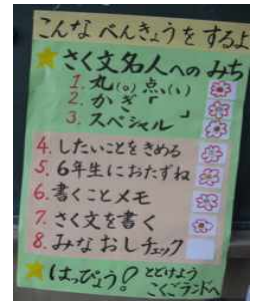 こんな べんきょうを するよ
さく文名人への みち
1. 丸(。)点(、)
2. かぎ「 」
3. スペシャル
4. したいことをきめる
5. 6年生におたずね
6. 書くことメモ
7. さく文を書く
8. みなおしチェック
はっぴょう? とどけよう
こくごランドへ